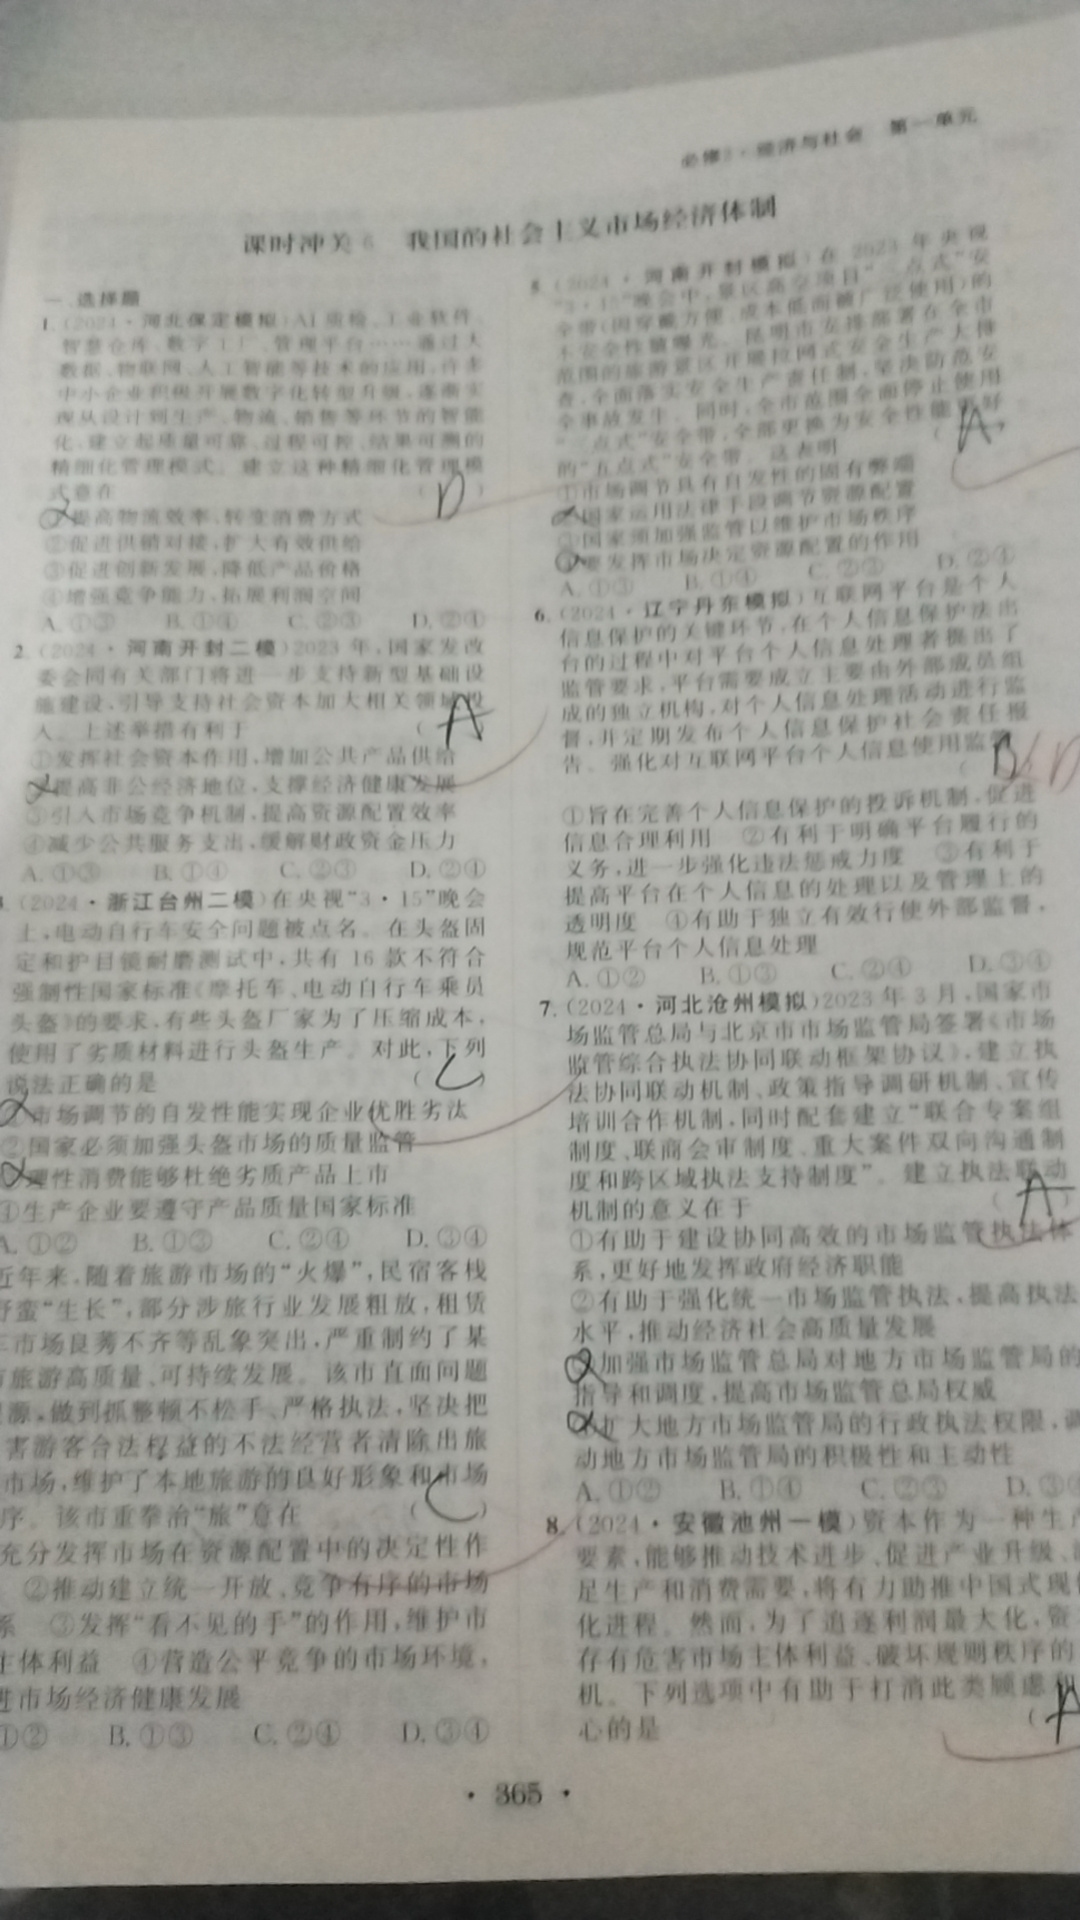 必修2·经济与社会 第一单元
课时冲关6 我国的社会主义市场经济体制
一、选择题
1.(2024·河北保定模拟)AI质检、工业软件、
智慧仓库、数字工厂、管理平台……通过大
数据、物联网、人工智能等技术的应用,许多
中小企业积极开展数字化转型升级,逐渐实
现从设计到生产、物流、销售等环节的智能
化,建立起质量可靠、过程可控、结果可溯的
精细化管理模式。建立这种精细化管理模
式意在 ( D )
①提高物流效率,转变消费方式
②促进供销对接,扩大有效供给
③促进创新发展,降低产品价格
④增强竞争能力,拓展利润空间
A.①③ B.①④ C.②③ D.②④
2.(2024·河南开封二模)2023年,国家发改
委会同有关部门将进一步支持新型基础设
施建设,引导支持社会资本加大相关领域投
入。上述举措有利于 ( A )
①发挥社会资本作用,增加公共产品供给
②提高非公经济地位,支撑经济健康发展
③引入市场竞争机制,提高资源配置效率
④减少公共服务支出,缓解财政资金压力
A.①③ B.①④ C.②③ D.②④
(2024·浙江台州二模)在央视“3·15”晚会
上,电动自行车安全问题被点名。在头盔固
定和护目镜耐磨测试中,共有16款不符合
强制性国家标准《摩托车、电动自行车乘员
头盔》的要求,有些头盔厂家为了压缩成本,
使用了劣质材料进行头盔生产。对此,下列
说法正确的是 ( C )
①市场调节的自发性能实现企业优胜劣汰
②国家必须加强头盔市场的质量监管
③理性消费能够杜绝劣质产品上市
④生产企业要遵守产品质量国家标准
A.①② B.①③ C.②④ D.③④
近年来,随着旅游市场的“火爆”,民宿客栈
野蛮“生长”,部分涉旅行业发展粗放,租赁
车市场良莠不齐等乱象突出,严重制约了某
市旅游高质量、可持续发展。该市直面问题
根源,做到抓整顿不松手、严格执法,坚决把
害游客合法权益的不法经营者清除出旅
市场,维护了本地旅游的良好形象和市场
序。该市重拳治“旅”意在 ( C )
充分发挥市场在资源配置中的决定性作
②推动建立统一开放、竞争有序的市场
系 ③发挥“看不见的手”的作用,维护市
主体利益 ④营造公平竞争的市场环境,
进市场经济健康发展
①② B.①③ C.②④ D.③④
5.(2024·河南开封模拟)在2023年央视
“3·15”晚会中,景区高空项目“三点式”安
全带(因穿戴方便、成本低而被广泛使用)的
不安全性被曝光。昆明市安排部署在全市
范围的旅游景区开展拉网式安全生产大排
查,全面落实安全生产责任制,坚决防范安
全事故发生。同时,全市范围全面停止使用
“三点式”安全带,全部更换为安全性能更好
的“五点式”安全带。这表明 ( A )
①市场调节具有自发性的固有弊端
②国家运用法律手段调节资源配置
③国家须加强监管以维护市场秩序
④要发挥市场决定资源配置的作用
A.①③ B.①④ C.②③ D.②④
6.(2024·辽宁丹东模拟)互联网平台是个人
信息保护的关键环节,在个人信息保护法出
台的过程中对平台个人信息处理者提出了
监管要求,平台需要成立主要由外部成员组
成的独立机构,对个人信息处理活动进行监
督,并定期发布个人信息保护社会责任报
告。强化对互联网平台个人信息使用监督
( B D
①旨在完善个人信息保护的投诉机制,促进
信息合理利用 ②有利于明确平台履行的
义务,进一步强化违法惩戒力度 ③有利于
提高平台在个人信息的处理以及管理上的
透明度 ④有助于独立有效行使外部监督,
规范平台个人信息处理
A.①② B.①③ C.②④ D.③④
7.(2024·河北沧州模拟)2023年3月,国家市
场监管总局与北京市市场监管局签署《市场
监管综合执法协同联动框架协议》,建立执
法协同联动机制、政策指导调研机制、宣传
培训合作机制,同时配套建立“联合专案组
制度、联商会审制度、重大案件双向沟通制
度和跨区域执法支持制度”。建立执法联动
机制的意义在于 ( A )
①有助于建设协同高效的市场监管执法体
系,更好地发挥政府经济职能
②有助于强化统一市场监管执法,提高执法
水平,推动经济社会高质量发展
③加强市场监管总局对地方市场监管局的
指导和调度,提高市场监管总局权威
④扩大地方市场监管局的行政执法权限,调
动地方市场监管局的积极性和主动性
A.①② B.①④ C.②③ D.③
8.(2024·安徽池州一模)资本作为一种生产
要素,能够推动技术进步、促进产业升级、
足生产和消费需要,将有力助推中国式现代
化进程。然而,为了追逐利润最大化,资
存有危害市场主体利益、破坏规则秩序的
机。下列选项中有助于打消此类顾虑和
心的是 ( A
·365·